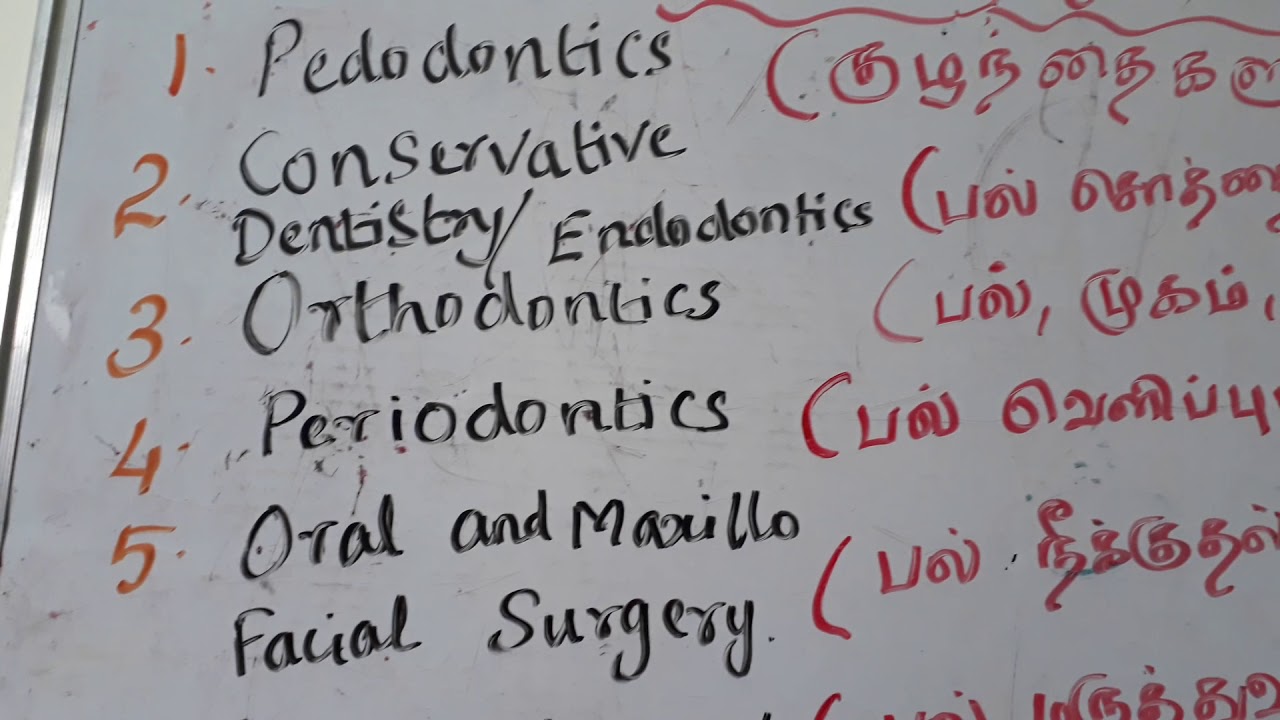 1. Pedodontics (குழந்தைகள
2. Conservative
Dentistry/ Endodontics (பல் சொத்தை
3. Orthodontics (பல், முகம்,
4. Periodontics (பல் வெளிப்பு
5. Oral and Maxillo
Facial Surgery. (பல் நீக்குதல்
(பல் மருத்துவ